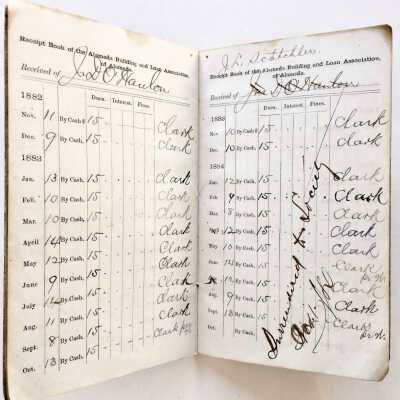 Receipt Book of the Alameda Building and Loan Association,
of Alameda.
Received of J. D. O'Hanlon
Dues. Interest. Fines.
1882
Nov. 11 By Cash $ 15 Clark
Dec. 9 By Cash. 15 Clark
1883
Jan. 13 By Cash. 15 Clark
Feb. 10 By Cash. 15 Clark
Mar. 10 By Cash. 15 Clark
April 14 By Cash. 15 Clark
May 12 By Cash. 15 Clark
June 9 By Cash. 15 Clark
July 14 By Cash. 15 Clark
Aug. 11 By Cash. 15 Clark
Sept. 8 By Cash. 15 Clark
Oct. 13 By Cash. 15
Receipt Book of the Alameda Building and Loan Association,
of Alameda.
Received of J. D. O'Hanlon
Dues. Interest. Fines.
1883
Nov. 10 By Cash $ 15 Clark
Dec. By Cash. 15 Clark
1884
Jan. 12 By Cash. 15 Clark
Feb. 9 By Cash. 15 Clark
Mar. 8 By Cash. 15 Clark
12 By Cash. 15 Clark
May 10 By Cash. 15 Clark
By Cash. 15 Clark
By Cash. 15 Clark
Aug. 9 By Cash. 15 Clark
Sept. 13 By Cash. 15 Clark
Oct. By Cash. Clark
Surrendered to Society